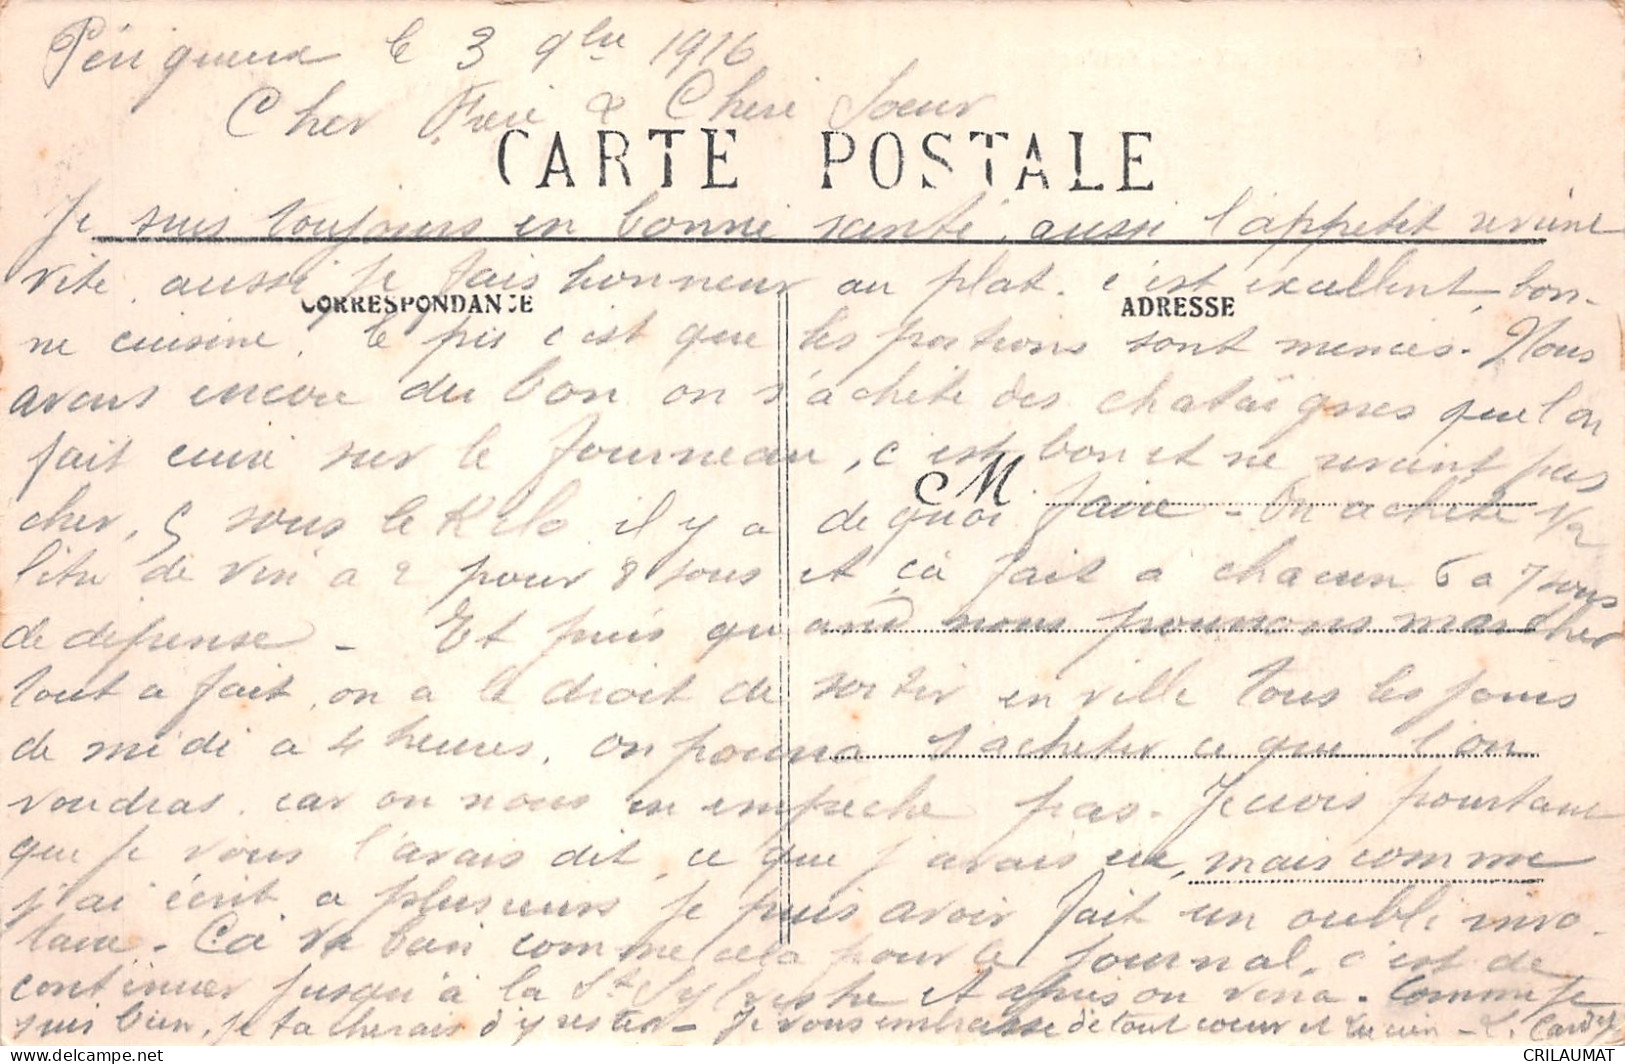 Périgueux le 3 9bre 1916
Cher Frere & Chere Soeur
CARTE POSTALE
Je suis toujours en bonne santé, aussi l'appetit revient
vite, aussi je fais honneur au plat. c'est excellent, bon-
CORRESPONDANCE
ADRESSE
ne cuisine, le pis c'est que les portions sont minces. Nous
avons encore du bon on s'achète des chataignes que l'on
fait cuire sur le fourneau, c'est bon et ne revient pas
M
cher, 5 sous le Kilo il y a de quoi faire - On achète 1/2
litre de vin a 2 pour 8 sous et ça fait a chacun 6 a 7 sous
de depense - Et puis quand nous pourrons marcher
tout a fait, on a le droit de sortir en ville tous les jours
de midi a 4 heures, on pourra s'acheter ce que l'on
voudras, car on nous en empeche pas. Je crois pourtant
que je vous l'avais dit, ce que j'avais eu, mais comme
j'ai écrit a plusieurs je puis avoir fait un oubli invo-
taire. Ca va bien comme cela pour le journal, c'est de
continuer jusqu'à la St Sylvestre et apres on verra. Comme je
suis bien, je tacherais d'y rester - Je vous embrasse de tout coeur et Lucien - L.
CRILAUMAT